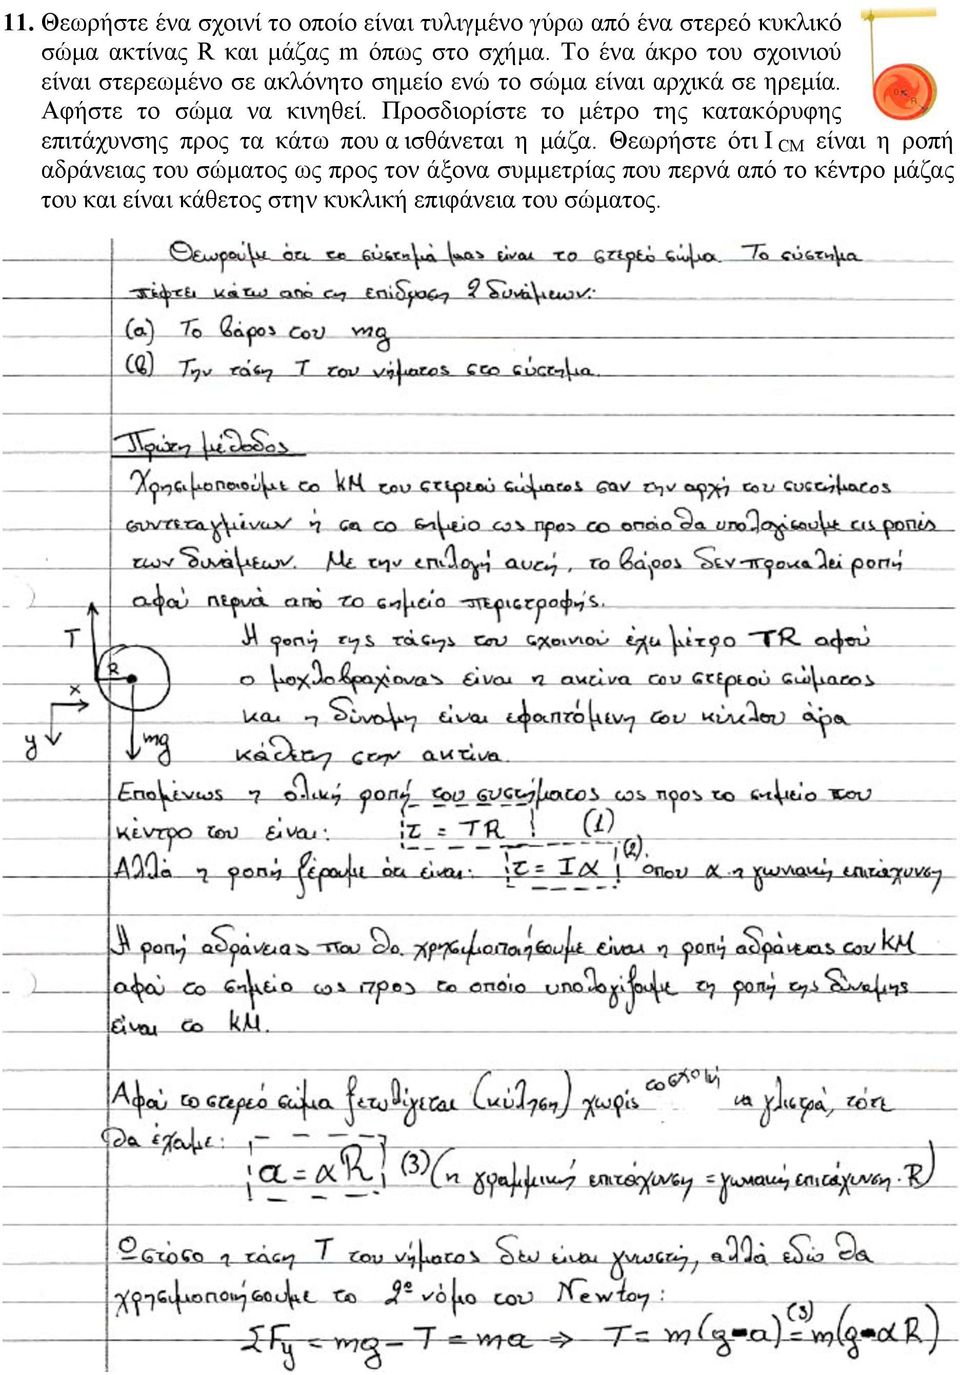 11. Θεωρήστε ένα σχοινί το οποίο είναι τυλιγμένο γύρω από ένα στερεό κυκλικό
σώμα ακτίνας R και μάζας m όπως στο σχήμα. Το ένα άκρο του σχοινιού
είναι στερεωμένο σε ακλόνητο σημείο ενώ το σώμα είναι αρχικά σε ηρεμία.
Αφήστε το σώμα να κινηθεί. Προσδιορίστε το μέτρο της κατακόρυφης
επιτάχυνσης προς τα κάτω που αισθάνεται η μάζα. Θεωρήστε ότι I CM είναι η ροπή
αδράνειας του σώματος ως προς τον άξονα συμμετρίας που περνά από το κέντρο μάζας
του και είναι κάθετος στην κυκλική επιφάνεια του σώματος.
R
Θεωρούμε ότι το σύστημά μας είναι το στερεό σώμα. Το σύστημα
πέφτει κάτω από τη επίδραση 2 δυνάμεων:
(α) Το βάρος του mg
(β) Την τάση T του νήματος στο σύστημα.
Πρώτη μέθοδος
Χρησιμοποιούμε το ΚΜ του στερεού σώματος σαν την αρχή του συστήματος
συντεταγμένων ή σα το σημείο ως προς το οποίο θα υπολογίσουμε τις ροπές
των δυνάμεων. Με την επιλογή αυτή, το βάρος δεν προκαλεί ροπή
αφού περνά από το σημείο περιστροφής.
Η ροπή της τάσης του σχοινιού έχει μέτρο TR αφού
ο μοχλοβραχίονας είναι η ακτίνα του στερεού σώματος
και η δύναμη είναι εφαπτόμενη του κύκλου άρα
κάθετη στην ακτίνα.
T
R
x
y
mg
Επομένως η ολική ροπή του συστήματος ως προς το σημείο που
κέντρο του είναι: τ = TR (1)
Αλλά η ροπή ξέρουμε ότι είναι: τ = Iα (2) όπου α η γωνιακή επιτάχυνση
Η ροπή αδράνειας που θα χρησιμοποιήσουμε είναι η ροπή αδράνειας του ΚΜ
αφού το σημείο ως προς το οποίο υπολογίζουμε τη ροπή της δύναμης
είναι το ΚΜ.
Αφού το στερεό σώμα ξετυλίγεται (κύλιση) χωρίς το σχοινί να γλιστρά, τότε
θα έχουμε: a = αR (3) (η γραμμική επιτάχυνση = γωνιακή επιτάχυνση · R)
Ωστόσο η τάση T του νήματος δεν είναι γνωστή, αλλά εδώ θα
χρησιμοποιήσουμε το 2º νόμο του Newton:
ΣFy = mg - T = ma ⇒ T = m(g-a) (3)= m(g-αR)